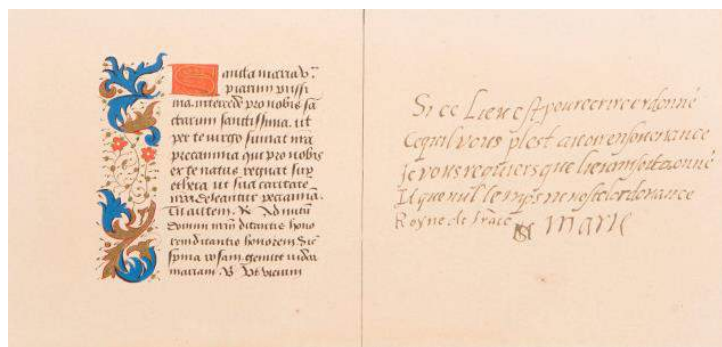 Sancta maria v.
piarum piissi
ma intercede pro nobis sā
ctarum sanctissima. ut
per te virgo sumat nrā
precamina qui pro nobis
ex te natus regnat sup
ethera ut sua caritate
nrā deleantur peccamīa.
Tu autem. R. Ad nutū
domini nrīm ditantis hono
rem ditantis honorem Sic
spina rosam genuit iudea
mariam. V. Ut vicium
Si ce Lieu est pour ecrire ordonné
Ce quil vous plest avoir en souvenance
Je vous requiers que lieu mi soit donné
Et que nul temps nen oste lordonance
Royne de france Marie